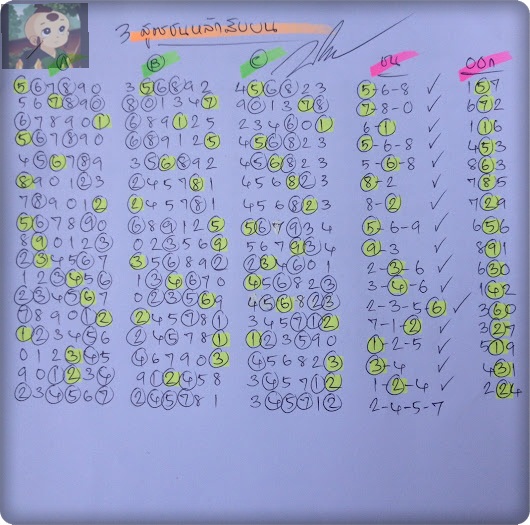 3 สูตรชนหลักสิบบน
A B C ชน ออก
567890 356892 456823 5-6-8 ✓ 157
567890 801347 901378 7-8-0 ✓ 672
678901 689125 234601 6-1 ✓ 116
567890 689125 456823 5-6-8 ✓ 453
456789 356892 456823 5-6-8 ✓ 863
890123 245781 456823 8-2 ✓ 785
789012 245781 456823 8-2 ✓ 729
567890 689125 567934 5-6-9 ✓ 656
890123 023569 567934 9-3 ✓ 891
234567 356892 234601 2-3-6 ✓ 630
123456 134670 456823 3-4-6 ✓ 142
234567 023569 456823 2-3-5-6 ✓ 360
789012 245781 345712 7-1-2 ✓ 327
123456 245781 123590 1-2-5 ✓ 519
012345 467903 456823 3-4 ✓ 431
901234 912458 345712 1-2-4 ✓ 224
234567 245781 345712 2-4-5-7